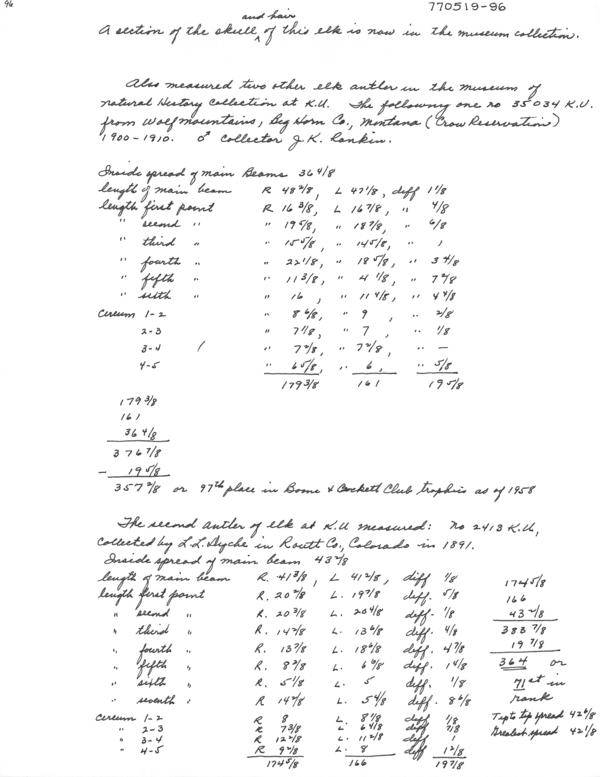 96
770519-96
and hair
A section of the skull ^ of this elk is now in the museum collection.
Also measured two other elk antler in the museum of
natural History Collection at K.U. The following one no 35034 K.U.
from Wolf mountains, Big Horn Co., Montana (Crow Reservation)
1900-1910. ♂ Collector J.K. Rankin.
Inside spread of main Beams 36 4/8
length of main beam R 48 2/8, L 47 1/8, diff 1 1/8
length first point R 16 3/8, L 16 7/8, " 4/8
" second " " 19 5/8, " 18 7/8, " 6/8
" third " " 15 5/8, " 14 5/8, " 1
" fourth " " 22 1/8, " 18 5/8, " 3 4/8
" fifth " " 11 3/8, " 4 1/8, " 7 2/8
" sixth " " 16, " 11 4/8, " 4 4/8
Circum 1-2 " 8 6/8, " 9, " 2/8
2-3 " 7 1/8, " 7, " 1/8
3-4 " 7 2/8, " 7 2/8, " —
4-5 " 6 5/8, " 6, " 5/8
179 3/8 161 19 5/8
179 3/8
161
36 4/8
376 7/8
- 19 5/8
357 2/8 or 97th place in Boone & Crockett Club trophies as of 1958
The second antler of elk at K.U measured: no 2413 K.U,
Collected by L.L. Dyche in Routt Co., Colorado in 1891.
Inside spread of main beam 43 2/8
length of main beam R. 41 3/8, L 41 2/8, diff 1/8
length first point R. 20 2/8 L. 19 7/8 diff. 5/8
" second " R. 20 3/8 L. 20 4/8 diff. 1/8
" third " R. 14 2/8 L. 13 6/8 diff. 4/8
" fourth " R. 13 7/8 L. 18 6/8 diff. 4 7/8
" fifth " R. 8 2/8 L. 6 6/8 diff. 1 4/8
" sixth " R. 5 1/8 L. 5 diff. 1/8
" seventh " R 14 2/8 L. 5 4/8 diff. 8 6/8
Circum 1-2 R 8 L. 8 1/8 diff 1/8
" 2-3 R 7 3/8 L 6 4/8 diff 7/8
" 3-4 R 12 2/8 L. 11 2/8 diff 1
" 4-5 R 9 2/8 L. 8 diff 1 2/8
174 5/8 166 19 7/8
174 5/8
166
43 2/8
383 7/8
19 7/8
364 or
71st in
rank
Tip to tip spread 42 6/8
Greatest spread 42 1/8